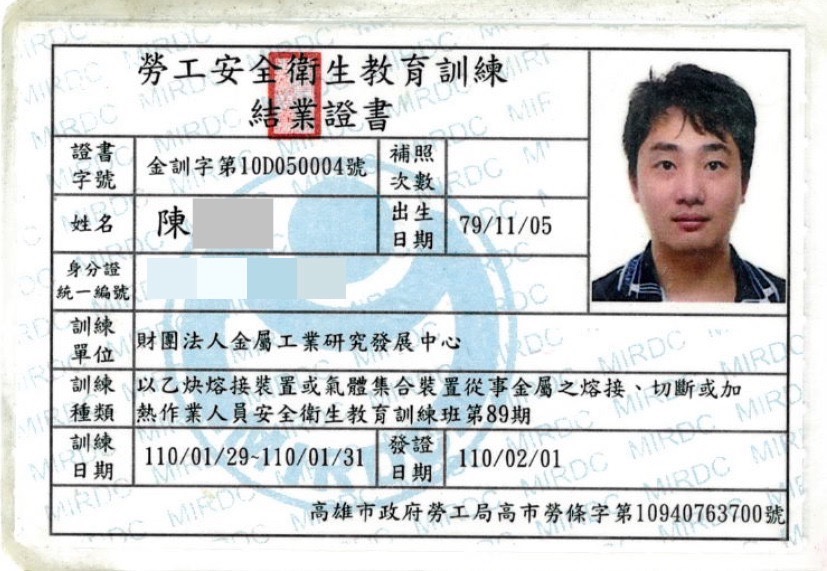 勞工安全衛生教育訓練
結業證書
證書字號 金訓字第10D050004號 補照次數
姓名 陳 出生日期 79/11/05
身分證統一編號
訓練單位 財團法人金屬工業研究發展中心
訓練種類 以乙炔熔接裝置或氣體集合裝置從事金屬之熔接、切斷或加
熱作業人員安全衛生教育訓練班第89期
訓練日期 110/01/29~110/01/31 發證日期 110/02/01
高雄市政府勞工局高市勞條字第10940763700號
MIRDC